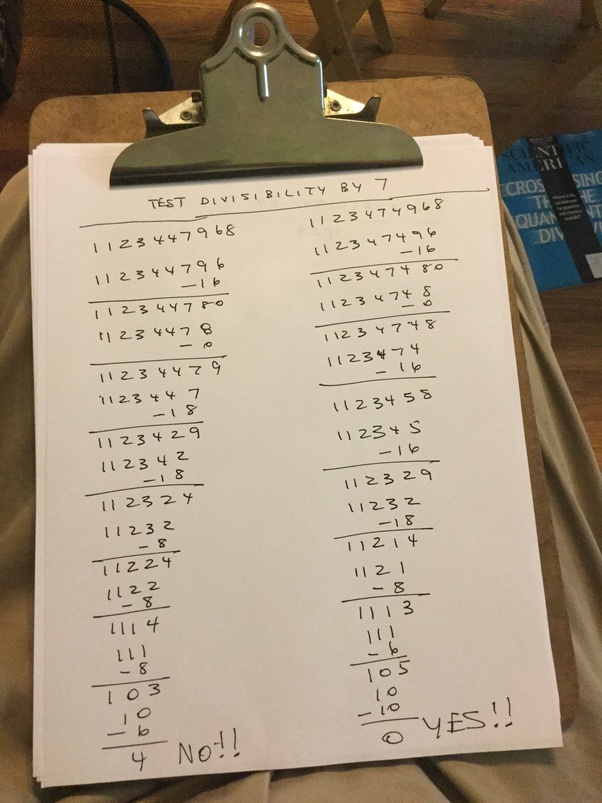 TEST DIVISIBILITY BY 7
11234447968
1123444796
-16
1123444780
112344478
- 0
112344479
11234447
-18
11234429
1123442
-18
112324
11232
-8
11224
1122
-8
1114
111
-8
103
10
-6
4 NO!!
11234474968
1123474496
-16
1123474480
112347448
- 0
112347448
1123474
- 16
1123458
112345
-16
112329
11232
-18
11214
1121
-8
1113
111
-6
105
10
-10
0 YES!!
SCIENTIFIC
AMERICAN